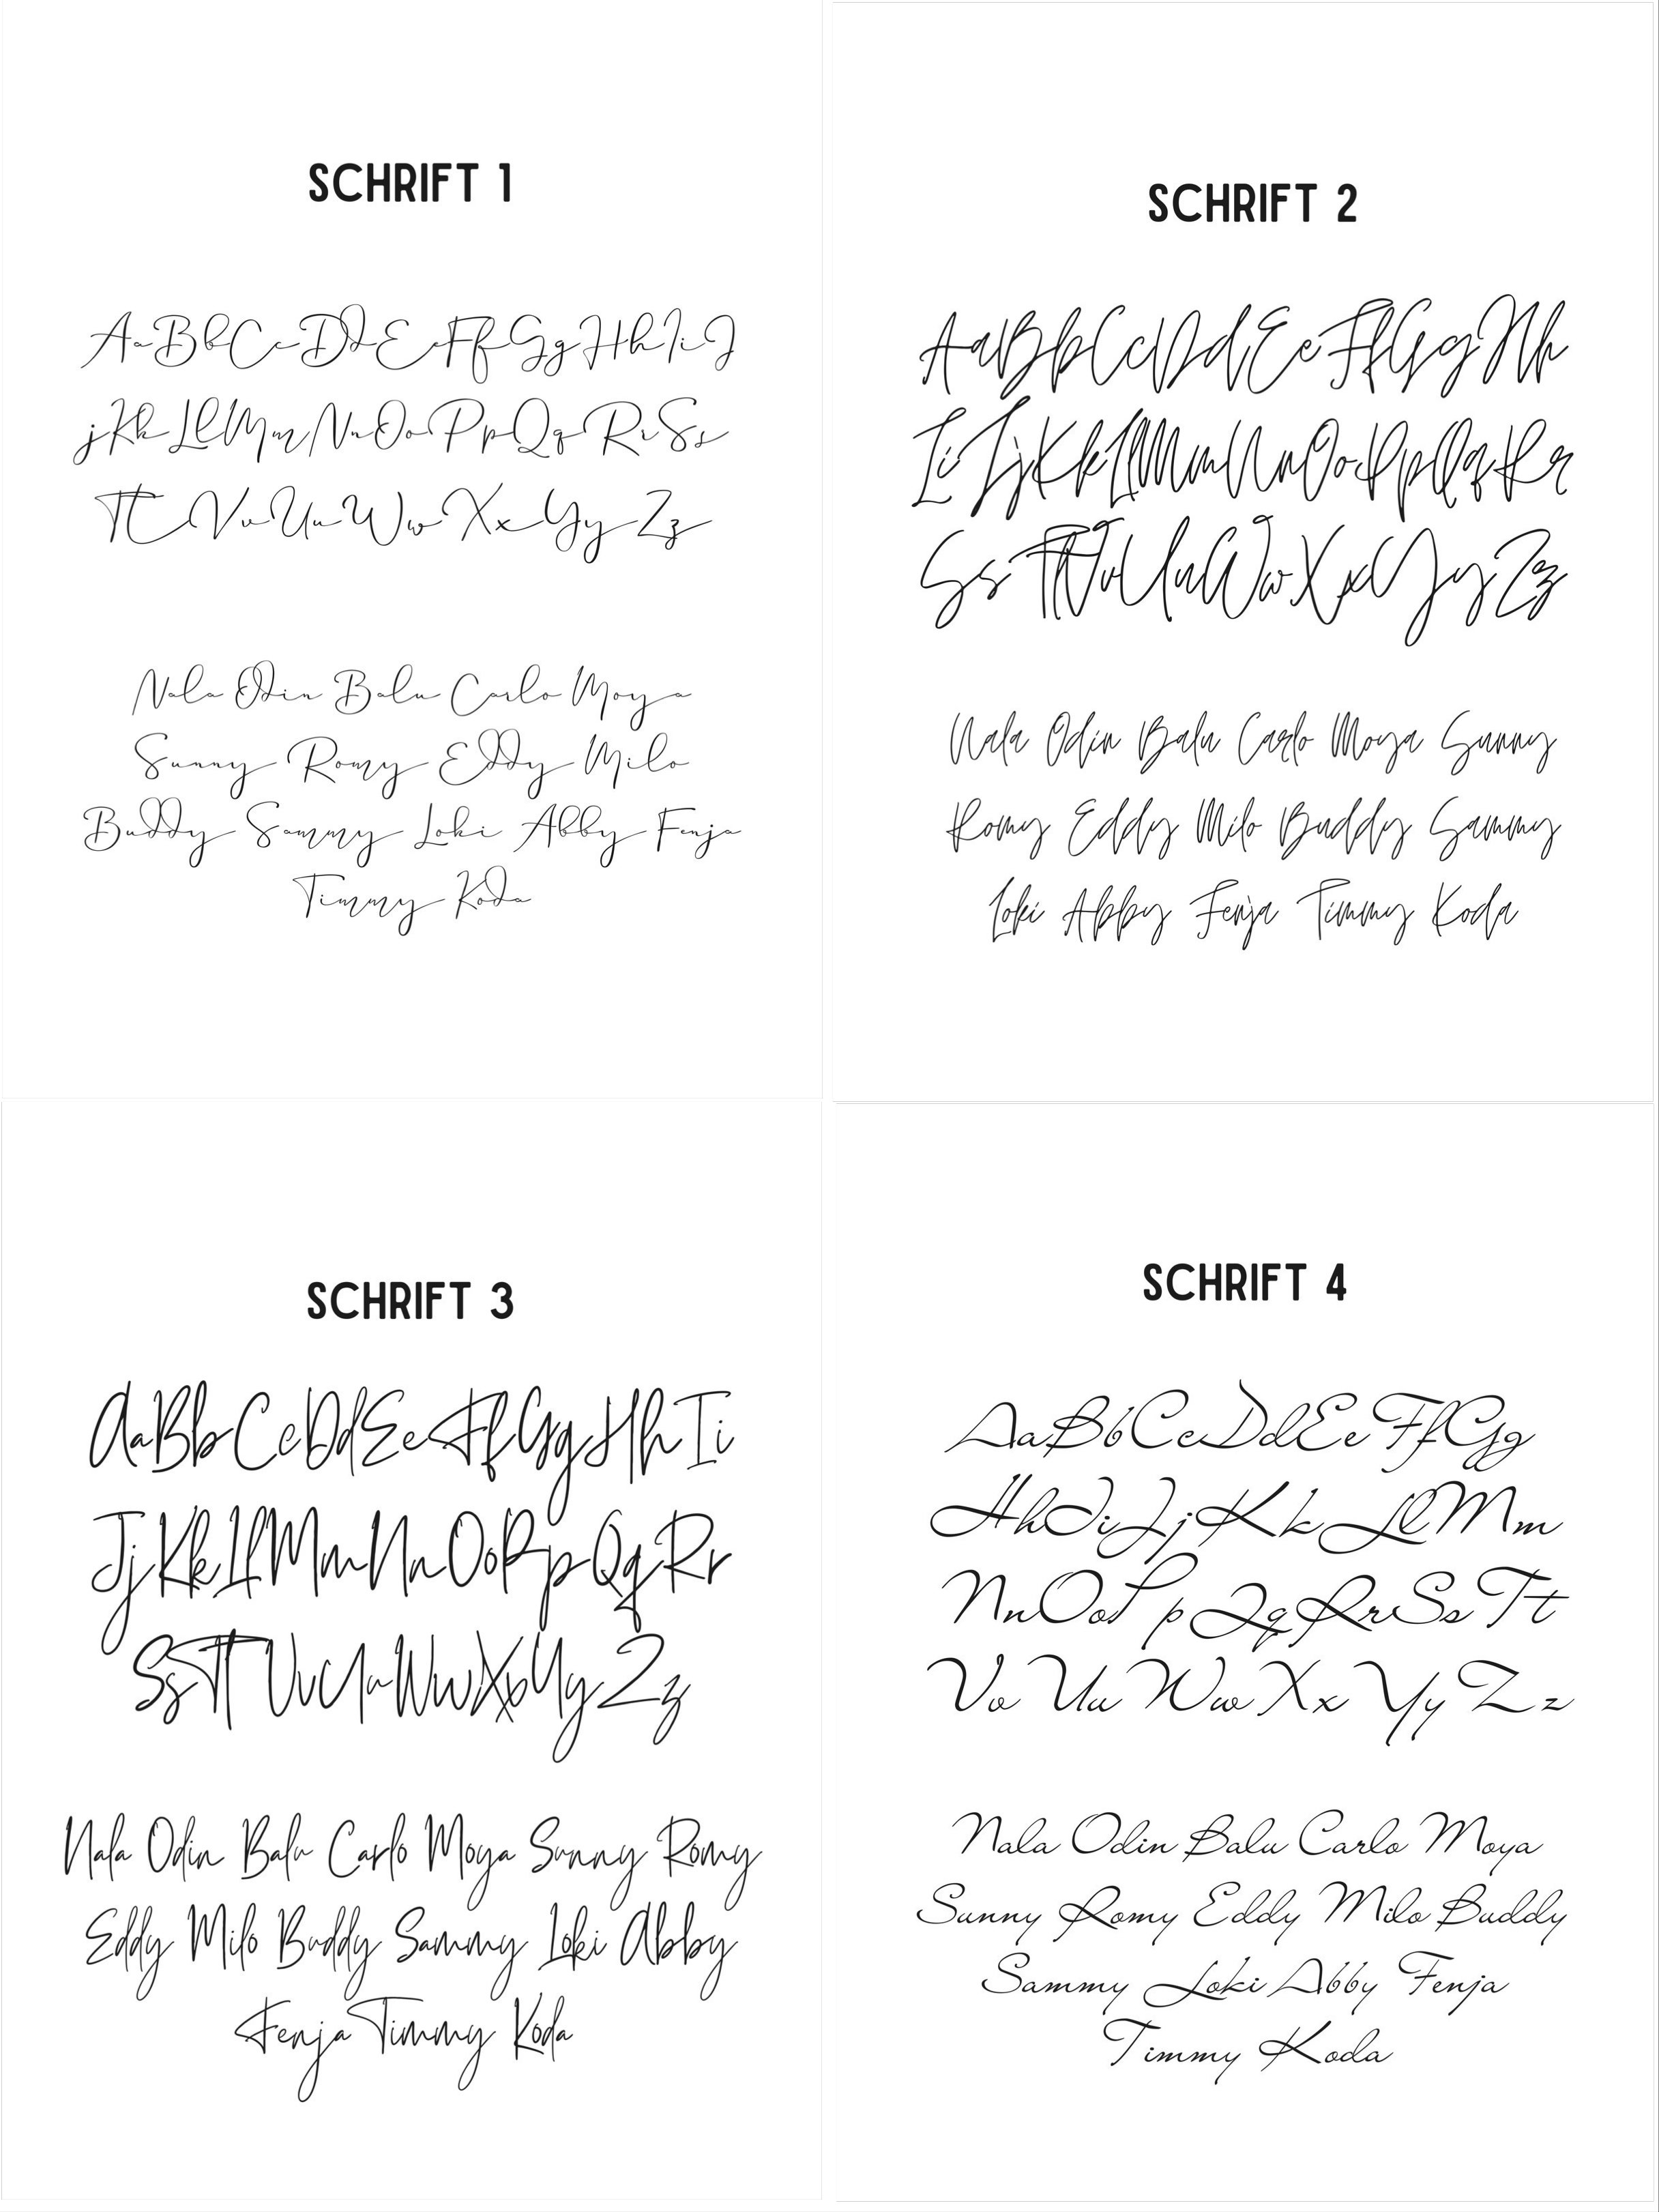 SCHRIFT 1
AaBbCcDdEeFfGgHhIiJ
jKkLlMmNnOoPpQqRrSs
TtVvUuWwXxYyZz
Nala Odin Balu Carlo Moya
Sunny Romy Eddy Milo
Buddy Sammy Loki Abby Fenja
Timmy Koda
SCHRIFT 2
AaBbCcDdEeFfGgHh
IiJjKkLlMmNnOoPpQqRr
SsTtVvUuWwXxYyZz
Nala Odin Balu Carlo Moya Sunny
Romy Eddy Milo Buddy Sammy
Loki Abby Fenja Timmy Koda
SCHRIFT 3
AaBbCcDdEeFfGgHhIi
JjKkLlMmNnOoPpQqRr
SsTtVvUuWwXxYyZz
Nala Odin Balu Carlo Moya Sunny Romy
Eddy Milo Buddy Sammy Loki Abby
Fenja Timmy Koda
SCHRIFT 4
AaBbCcDdEeFfGg
HhIiJjKkLlMm
NnOoPpQqRrSsTt
VvUuWwXxYyZz
Nala Odin Balu Carlo Moya
Sunny Romy Eddy Milo Buddy
Sammy Loki Abby Fenja
Timmy Koda